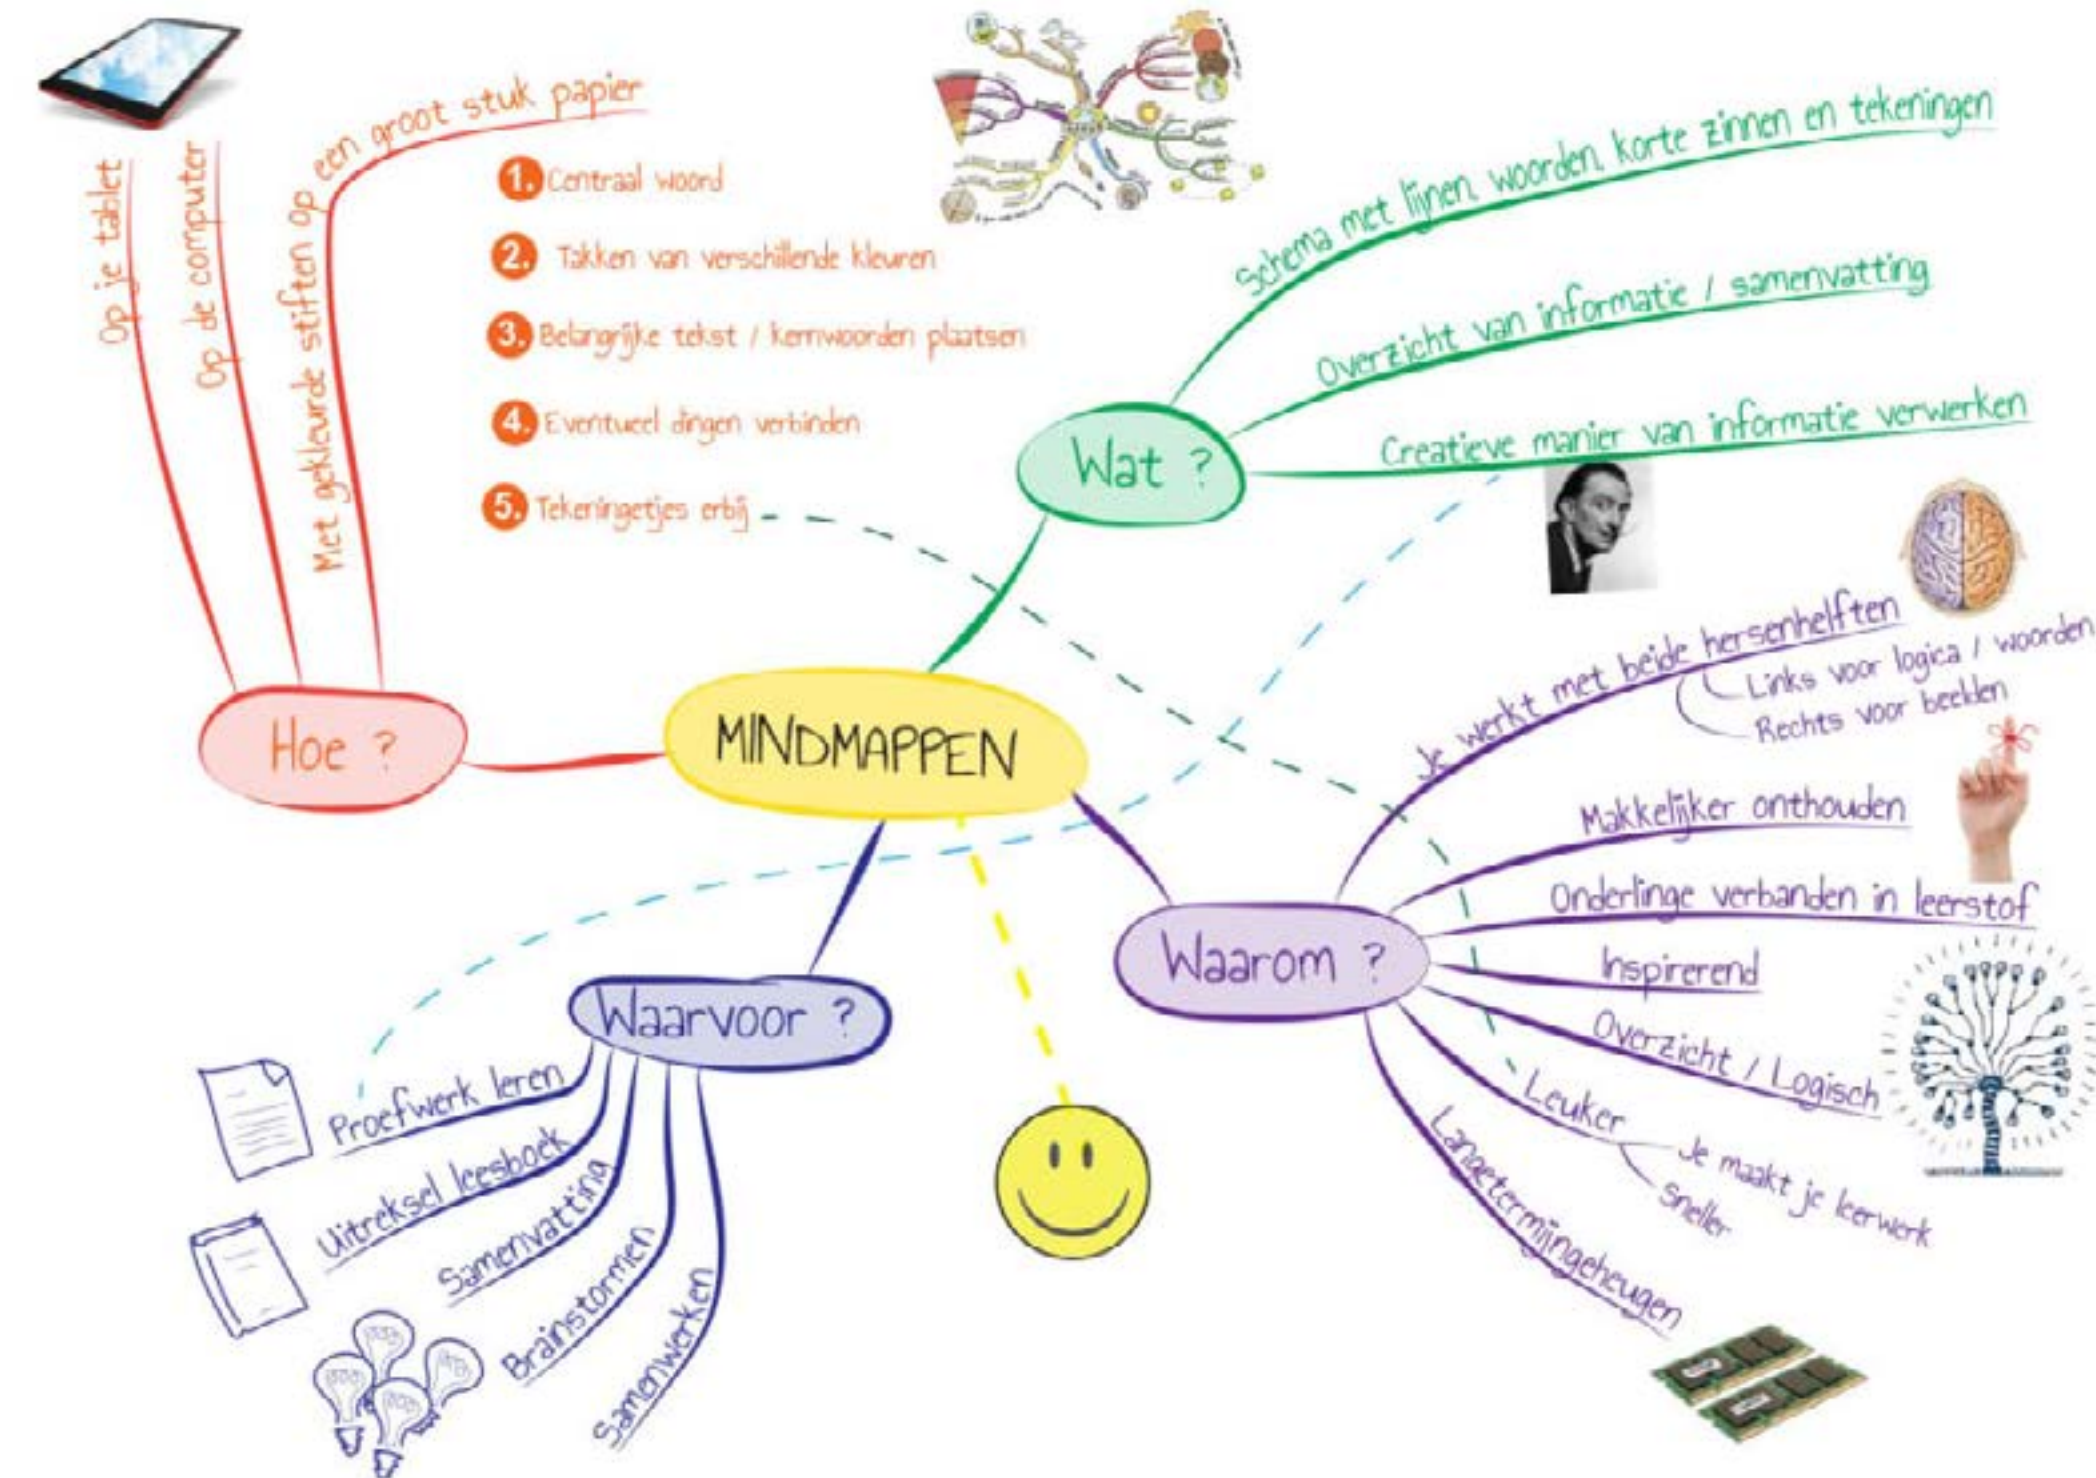 MINDMAPPEN
Hoe ?
Op je tablet
Op de computer
Met gekleurde stiften op een groot stuk papier
1. Centraal woord
2. Takken van verschillende kleuren
3. Belangrijke tekst / kernwoorden plaatsen
4. Eventueel dingen verbinden
5. Tekeningetjes erbij
Wat ?
Schema met lijnen, woorden, korte zinnen en tekeningen
Overzicht van informatie / samenvatting
Creatieve manier van informatie verwerken
Waarom ?
Je werkt met beide hersenhelften
Links voor logica / woorden
Rechts voor beelden
Makkelijker onthouden
Onderlinge verbanden in leerstof
Inspirerend
Overzicht / Logisch
Leuker
Je maakt je leerwerk
Sneller
Langetermijngeheugen
Waarvoor ?
Proefwerk leren
Uitreksel leesboek
Samenvatting
Brainstormen
Samenwerken